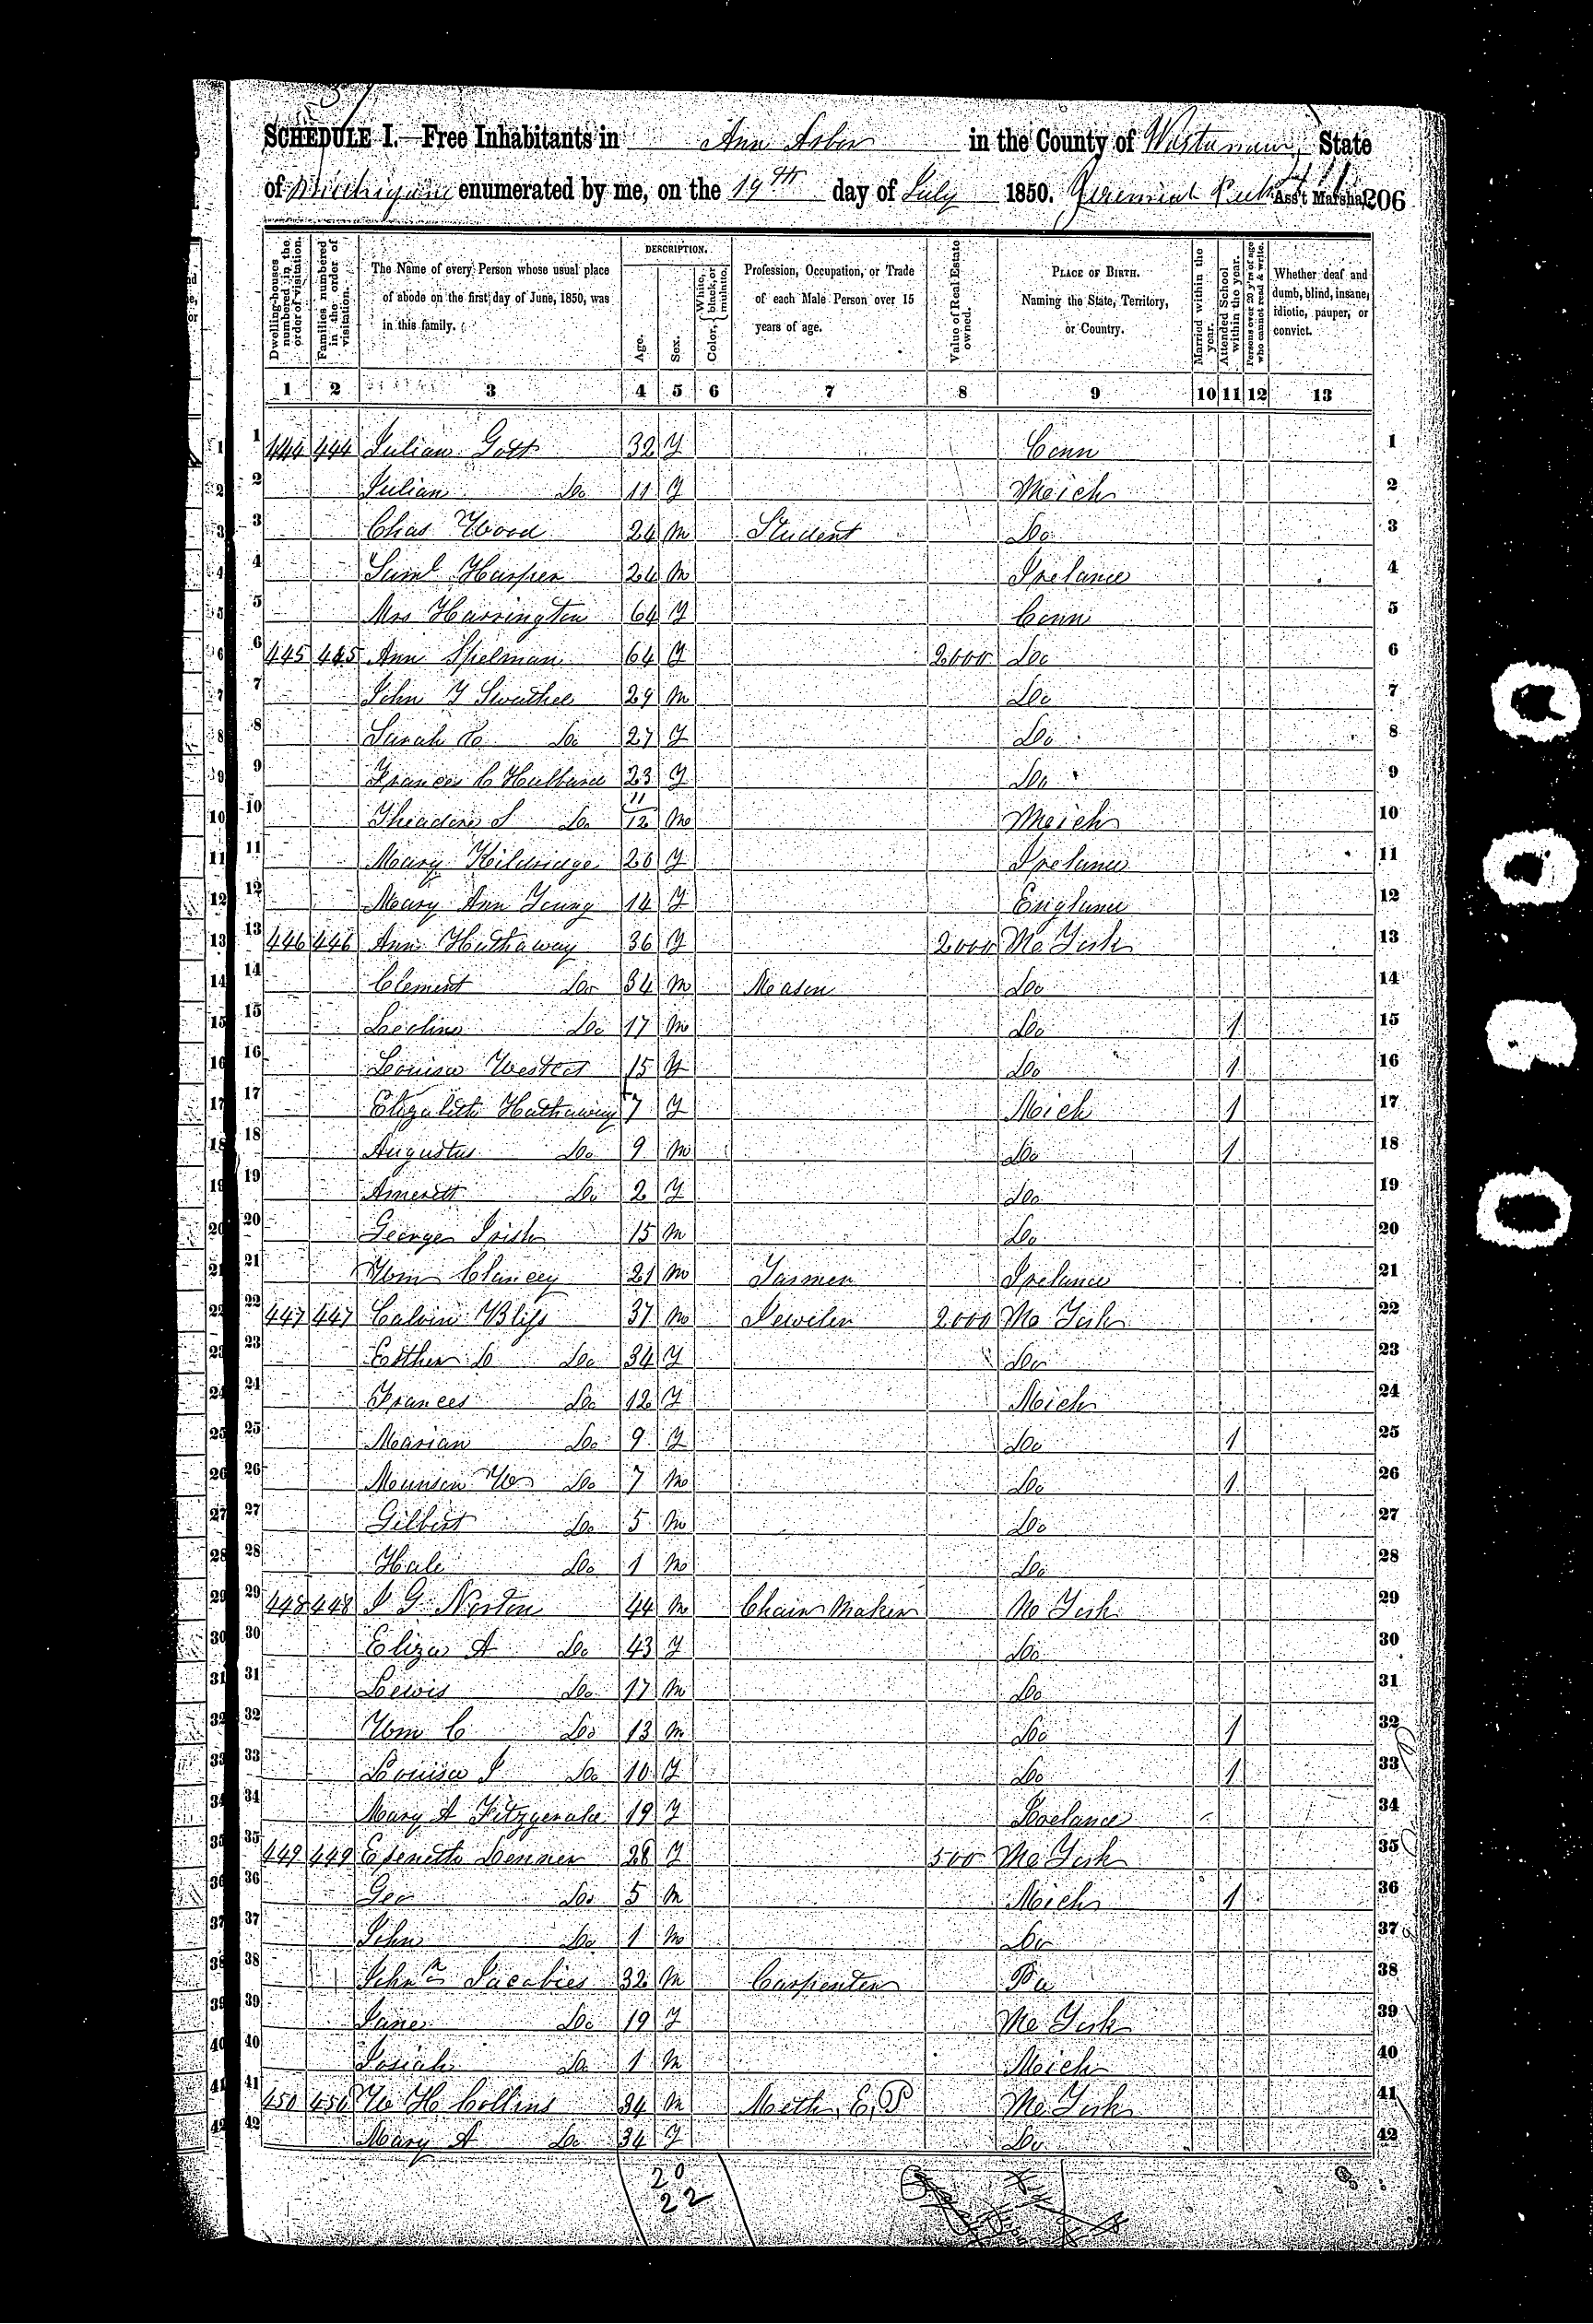 SCHEDULE I.—Free Inhabitants in Ann Arbor in the County of Wastenaw, State
of Michigan enumerated by me, on the 19th day of July 1850. Jeremiah Ass't Marshal 206
Dwelling-houses numbered in the order of visitation.
Families numbered in the order of visitation.
The Name of every Person whose usual place of abode on the first day of June, 1850, was in this family.
DESCRIPTION.
Age.
Sex.
Color, { White, black, or mulatto.
Profession, Occupation, or Trade of each Male Person over 15 years of age.
Value of Real Estate owned.
PLACE OF BIRTH. Naming the State, Territory, or Country.
Married within the year.
Attended School within the year.
Persons over 20 y'rs of age who cannot read & write.
Whether deaf and dumb, blind, insane, idiotic, pauper, or convict.
1 2 3 4 5 6 7 8 9 10 11 12 13
1 444 444 Julian Gott 32 F Conn 1
2 Julian Do 11 F Mich 2
3 Chas Wood 24 M Student Do 3
4 Saml Harper 24 M Ireland 4
5 Mrs Harrington 64 F Conn 5
6 445 445 Ann Spelman 64 F 2000 Do 6
7 John F Swathel 29 M Do 7
8 Sarah Do 27 F Do 8
9 Frances C Hulbard 23 F Do 9
10 Theadore S Do 11/12 M Mich 10
11 Mary Kildridge 20 F Ireland 11
12 Mary Ann Young 14 F England 12
13 446 446 Ann Hathaway 36 F 2000 Ne York 13
14 Clement Do 34 M Mason Do 14
15 Do 17 M Do 1 15
16 Louisa 15 F Do 1 16
17 Elizabeth Hathaway 7 F Mich 1 17
18 Augustus Do 9 M Do 1 18
19 Amerett Do 2 F Do 19
20 George Irish 15 M Do 20
21 Wm Clancey 21 M Farmer Ireland 21
22 447 447 Calvin Bliss 37 M Jeweler 2000 Ne York 22
23 Esther Do 34 F Do 23
24 Frances Do 12 F Mich 24
25 Marian Do 9 F Do 1 25
26 Munson W Do 7 M Do 1 26
27 Gilbert Do 5 M Do 27
28 Hale Do 1 M Do 28
29 448 448 I G Norton 44 M Chair Maker Ne York 29
30 Eliza A Do 43 F Do 30
31 Lewis Do 17 M Do 31
32 Wm C Do 13 M Do 1 32
33 Louisa J Do 10 F Do 1 33
34 Mary A Fitzgerald 19 F Ireland 34
35 449 449 28 F 500 Ne York 35
36 Geo Do 5 M Mich 1 36
37 John Do 1 M Do 37
38 John Jacobies 32 M Carpenter Pa 38
39 Jane Do 19 F Ne York 39
40 Josiah Do 1 M Mich 40
41 450 450 W H Collins 34 M Meth, E, P Ne York 41
42 Mary A Do 34 F Do 42
20
22